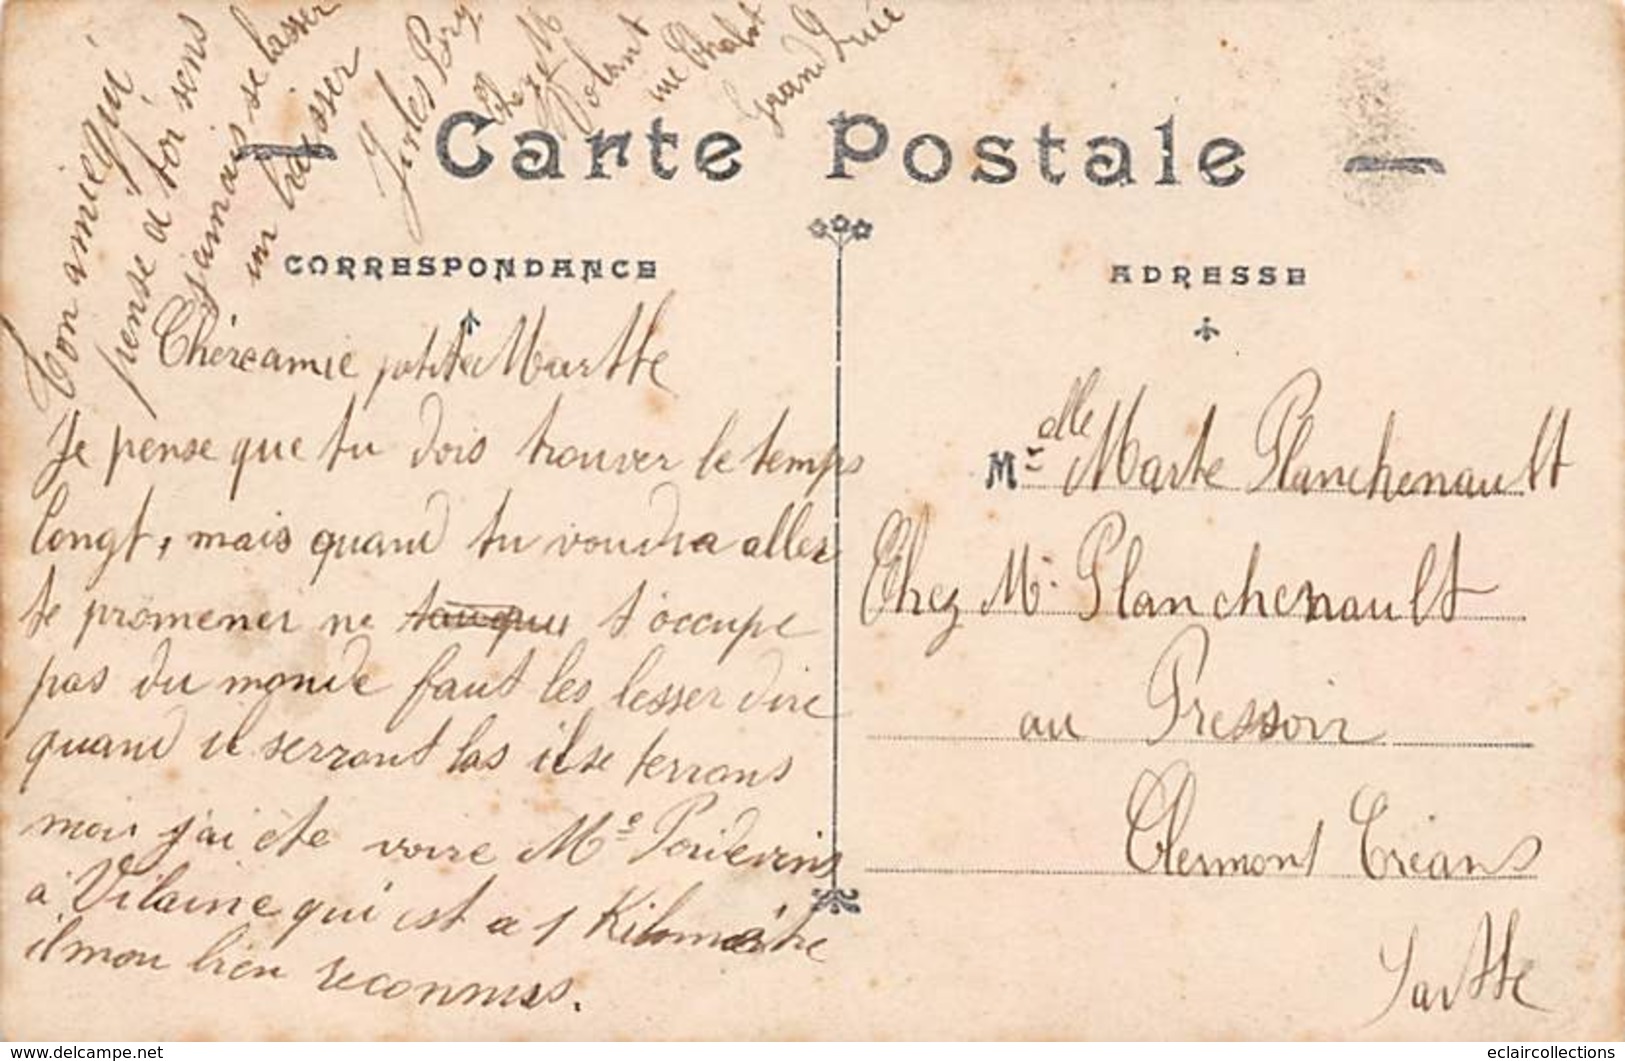 Ton amie qui
pense a toi sens
jamais se lasser
un baisser
Jules
Chez M
rue
Grand Lucé
Carte Postale
CORRESPONDANCE
ADRESSE
Chère amie petite Marthe
Je pense que tu dois trouver le temps
longt, mais quand tu voudra aller
te promener ne t'occupe
pas du monde faut les lesser dire
quand il serront las il se terrons
moi j'ai été voire Me Poidevins
a Vilaine qui est a 1 Kilomètre
il mon bien reconnus.
Melle Marte Planchenault
Chez Mr Planchenault
au Pressoir
Clermont Créans
Sarthe
delcampe.net
eclaircollections